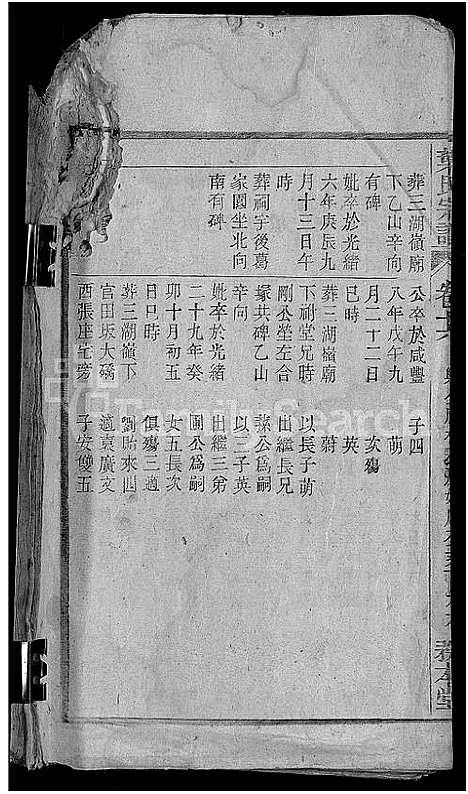 葬三湖嶺廟
下乙山辛向
有碑
妣卒於光緒
六年庚辰九
月十三日午
時
葬祠宇後葛
家園坐北向
南有碑
公卒於咸豐
八年戊午九
月二十二日
巳時
葬三湖嶺廟
下祔堂兄時
剛公坐左合
塚共碑乙山
辛向
妣卒於光緒
二十九年癸
卯十月初五
日巳時
葬三湖嶺下
官田坂大磡
西張座宅旁
子四
萌
次殤
英
蔚
以長子萌
出繼長兄
公為嗣
以三子英
出繼三弟
圃公為嗣
女五長次
俱殤三適
劉貽來四
適袁廣文
子安雙五
氏宗譜
卷
務本堂
FamilySearch